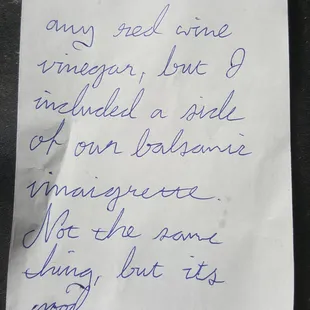 any red wine
vinegar, but I
included a side
of our balsamic
vinaigrette.
Not the same
thing, but its
good